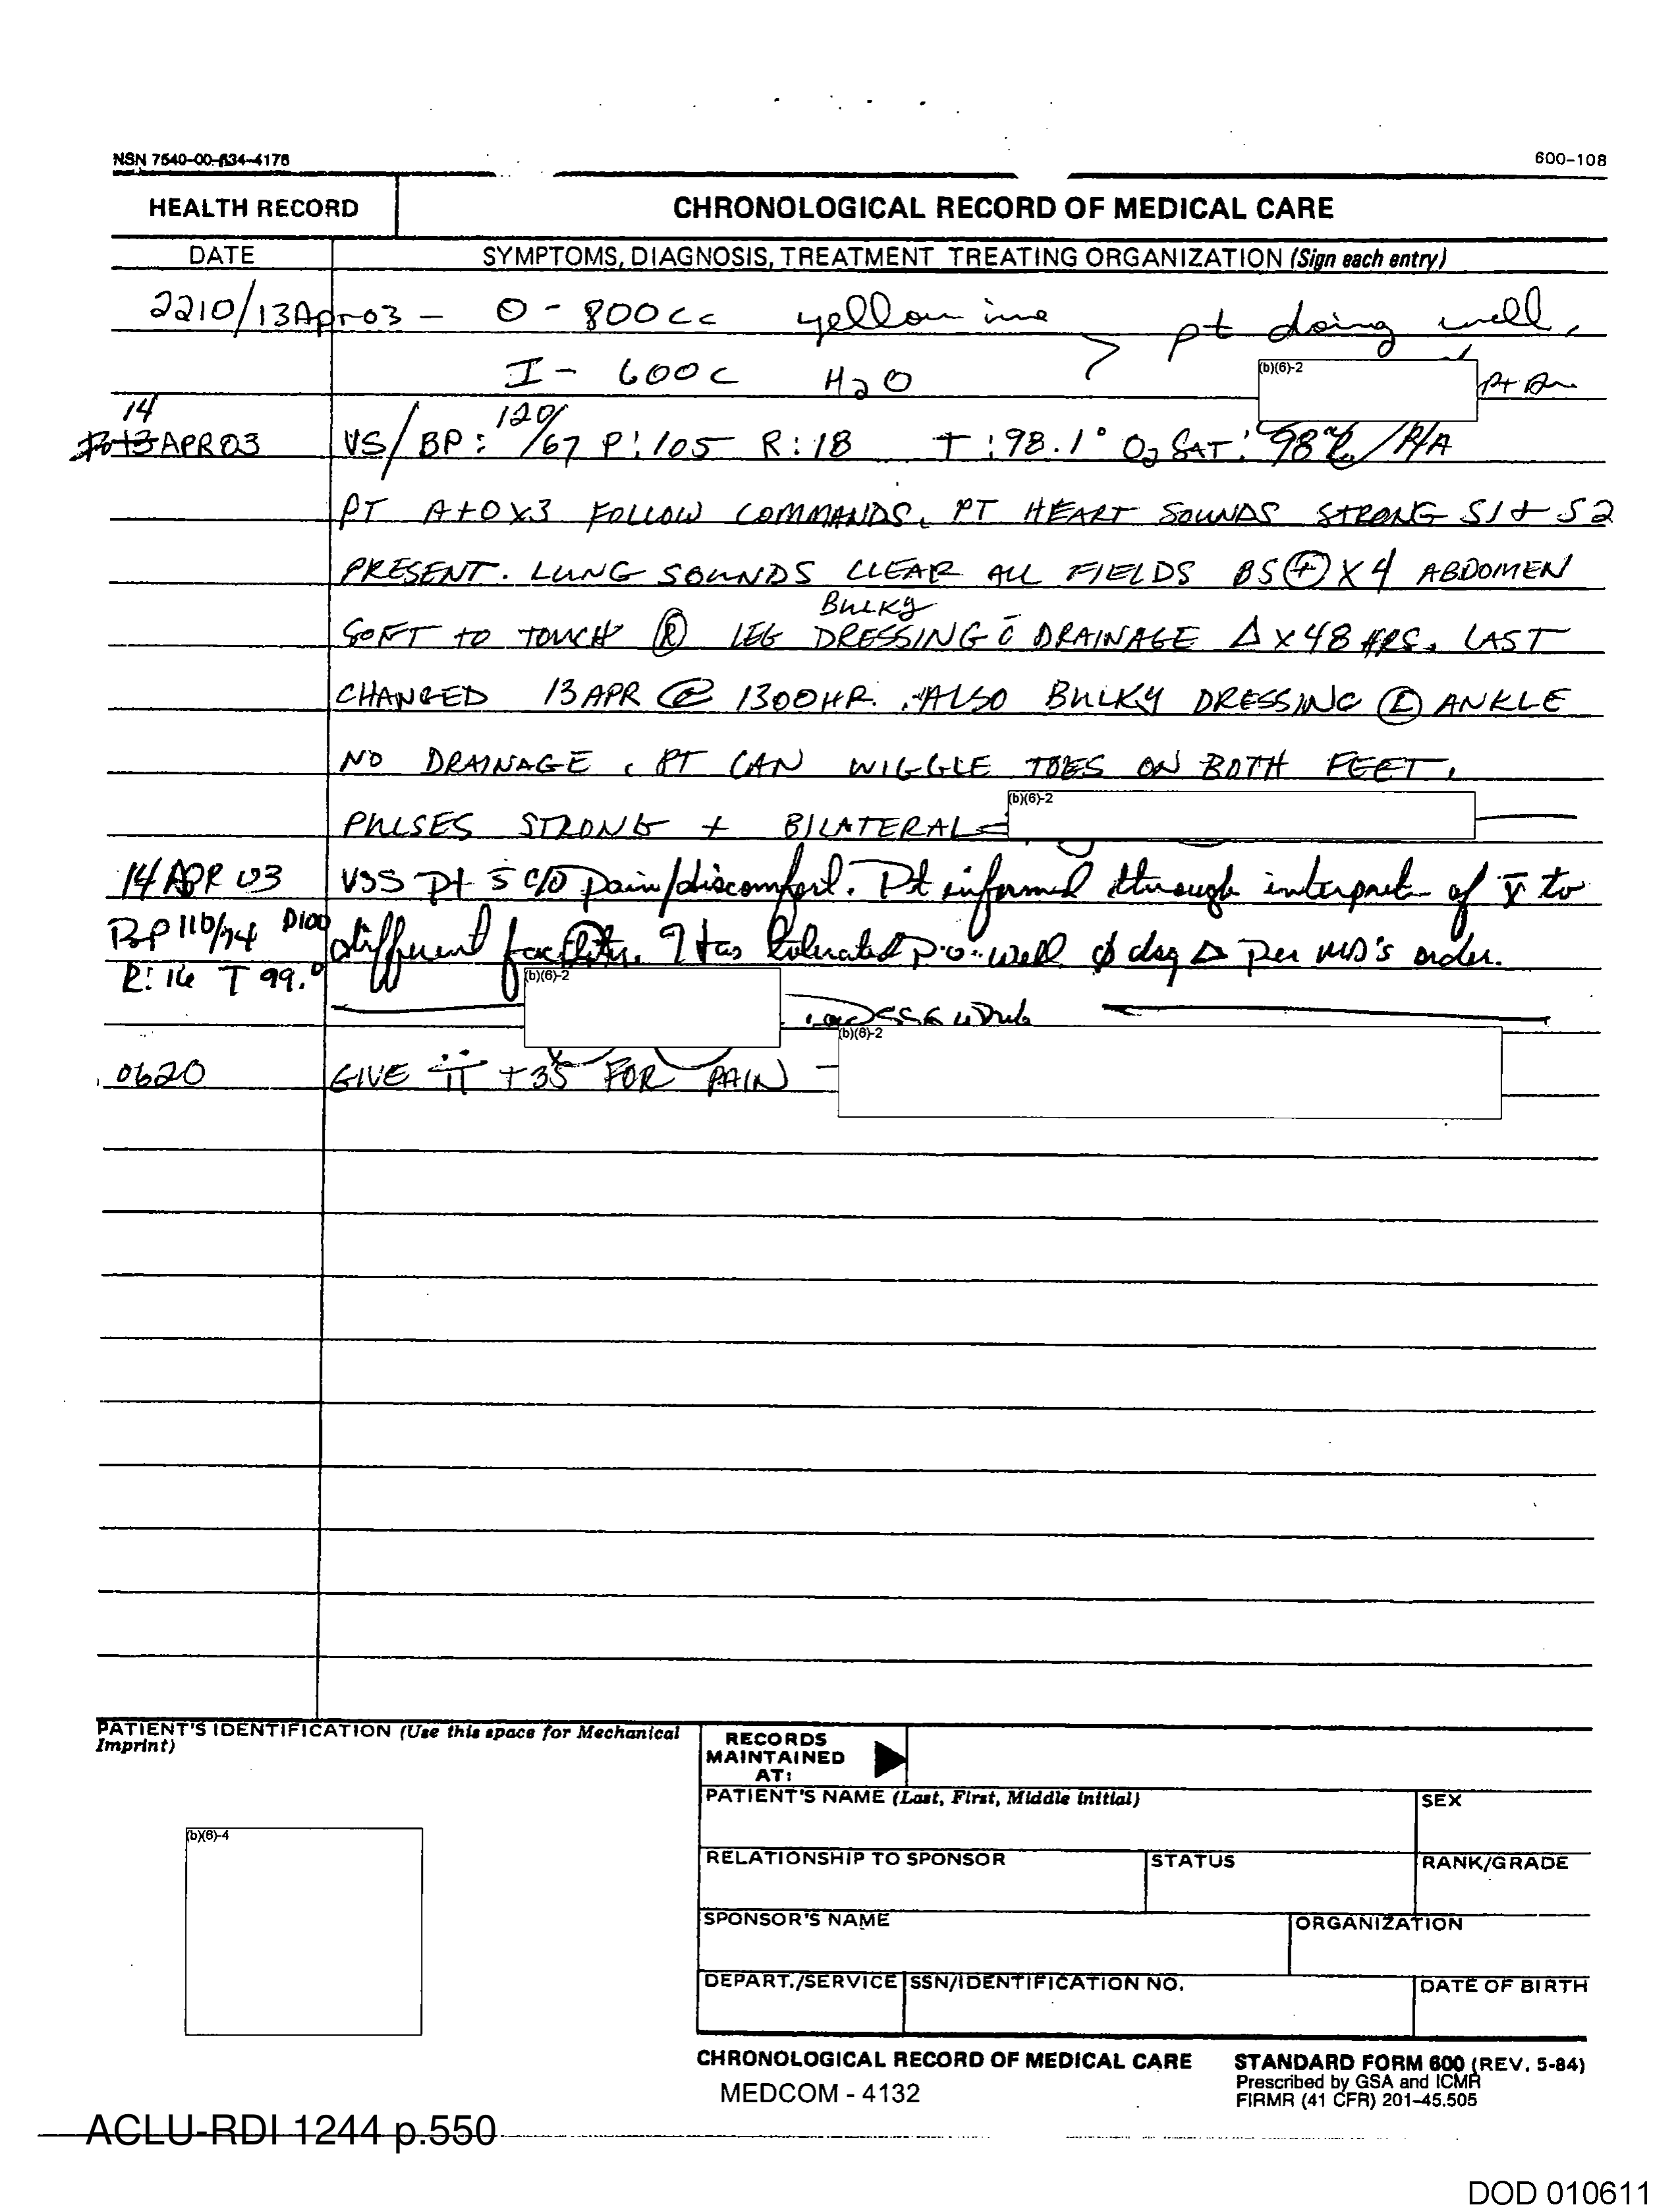 NSN 7540-00-634-4176
600-108
HEALTH RECORD
CHRONOLOGICAL RECORD OF MEDICAL CARE
DATE
SYMPTOMS, DIAGNOSIS, TREATMENT TREATING ORGANIZATION (Sign each entry)
2210/13Apr03 - O - 800cc yellow pt doing well,
I - 600c H2O
(b)(6)-2
14
APR03 VS/BP: 120/67 P:105 R:18 T:98.1° O2 SAT: 98% R/A
PT A+OX3 FOLLOW COMMANDS. PT HEART SOUNDS STRONG S1+S2
PRESENT. LUNG SOUNDS CLEAR ALL FIELDS BS⊕X4 ABDOMEN
Bulky
SOFT TO TOUCH Ⓡ LEG DRESSING c̄ DRAINAGE Δ X 48 HRS. LAST
CHANGED 13APR @ 1300HR. ALSO BULKY DRESSING Ⓛ ANKLE
NO DRAINAGE. PT CAN WIGGLE TOES ON BOTH FEET.
PULSES STRONG + BILATERAL
(b)(6)-2
14 APR 03 VSS pt s̄ c/o pain/discomfort. Pt informed through of to
BP 110/74 P100 different facility. Has tolerated p.o. well ∅ dsg Δ per MD's order.
R: 16 T 99.0
(b)(6)-2
(b)(6)-2
0620 GIVE ii T3S FOR PAIN -
PATIENT'S IDENTIFICATION (Use this space for Mechanical
Imprint)
RECORDS
MAINTAINED
AT:
PATIENT'S NAME (Last, First, Middle initial)
SEX
RELATIONSHIP TO SPONSOR
STATUS
RANK/GRADE
SPONSOR'S NAME
ORGANIZATION
DEPART./SERVICE
SSN/IDENTIFICATION NO.
DATE OF BIRTH
(b)(6)-4
CHRONOLOGICAL RECORD OF MEDICAL CARE
STANDARD FORM 600 (REV. 5-84)
Prescribed by GSA and ICMR
FIRMR (41 CFR) 201-45.505
MEDCOM - 4132
ACLU-RDI 1244 p.550
DOD 010611